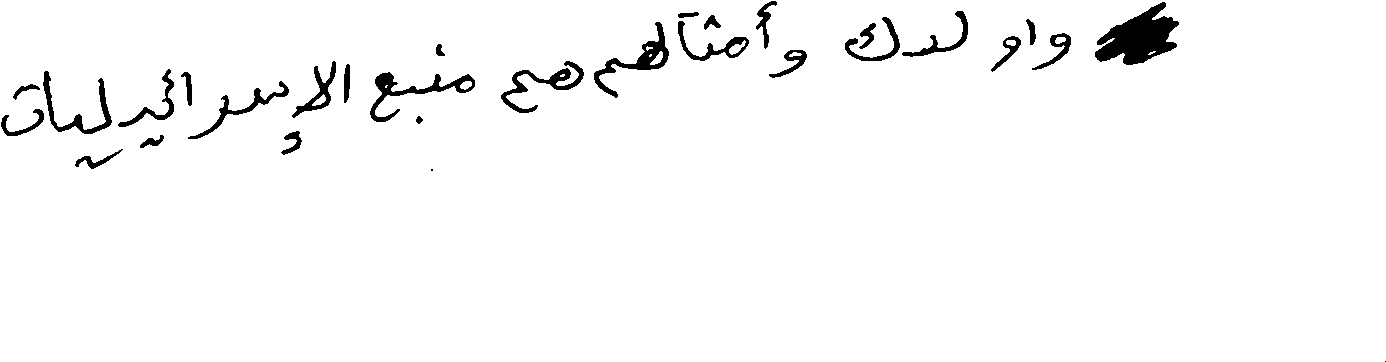 واولدك وأمثالهم هم منبع الإسرائيليات